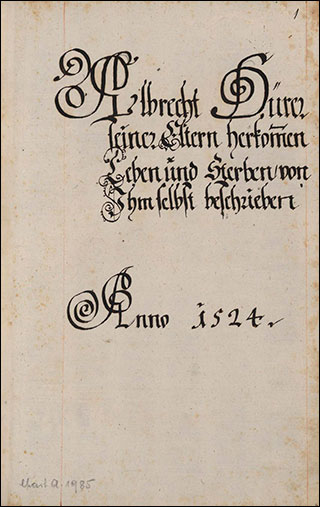 1
Albrecht Dürer
seiner Eltern herkom̄en
Leben und Sterben, von
Ihm selbst beschrieben
Anno 1524.
1985